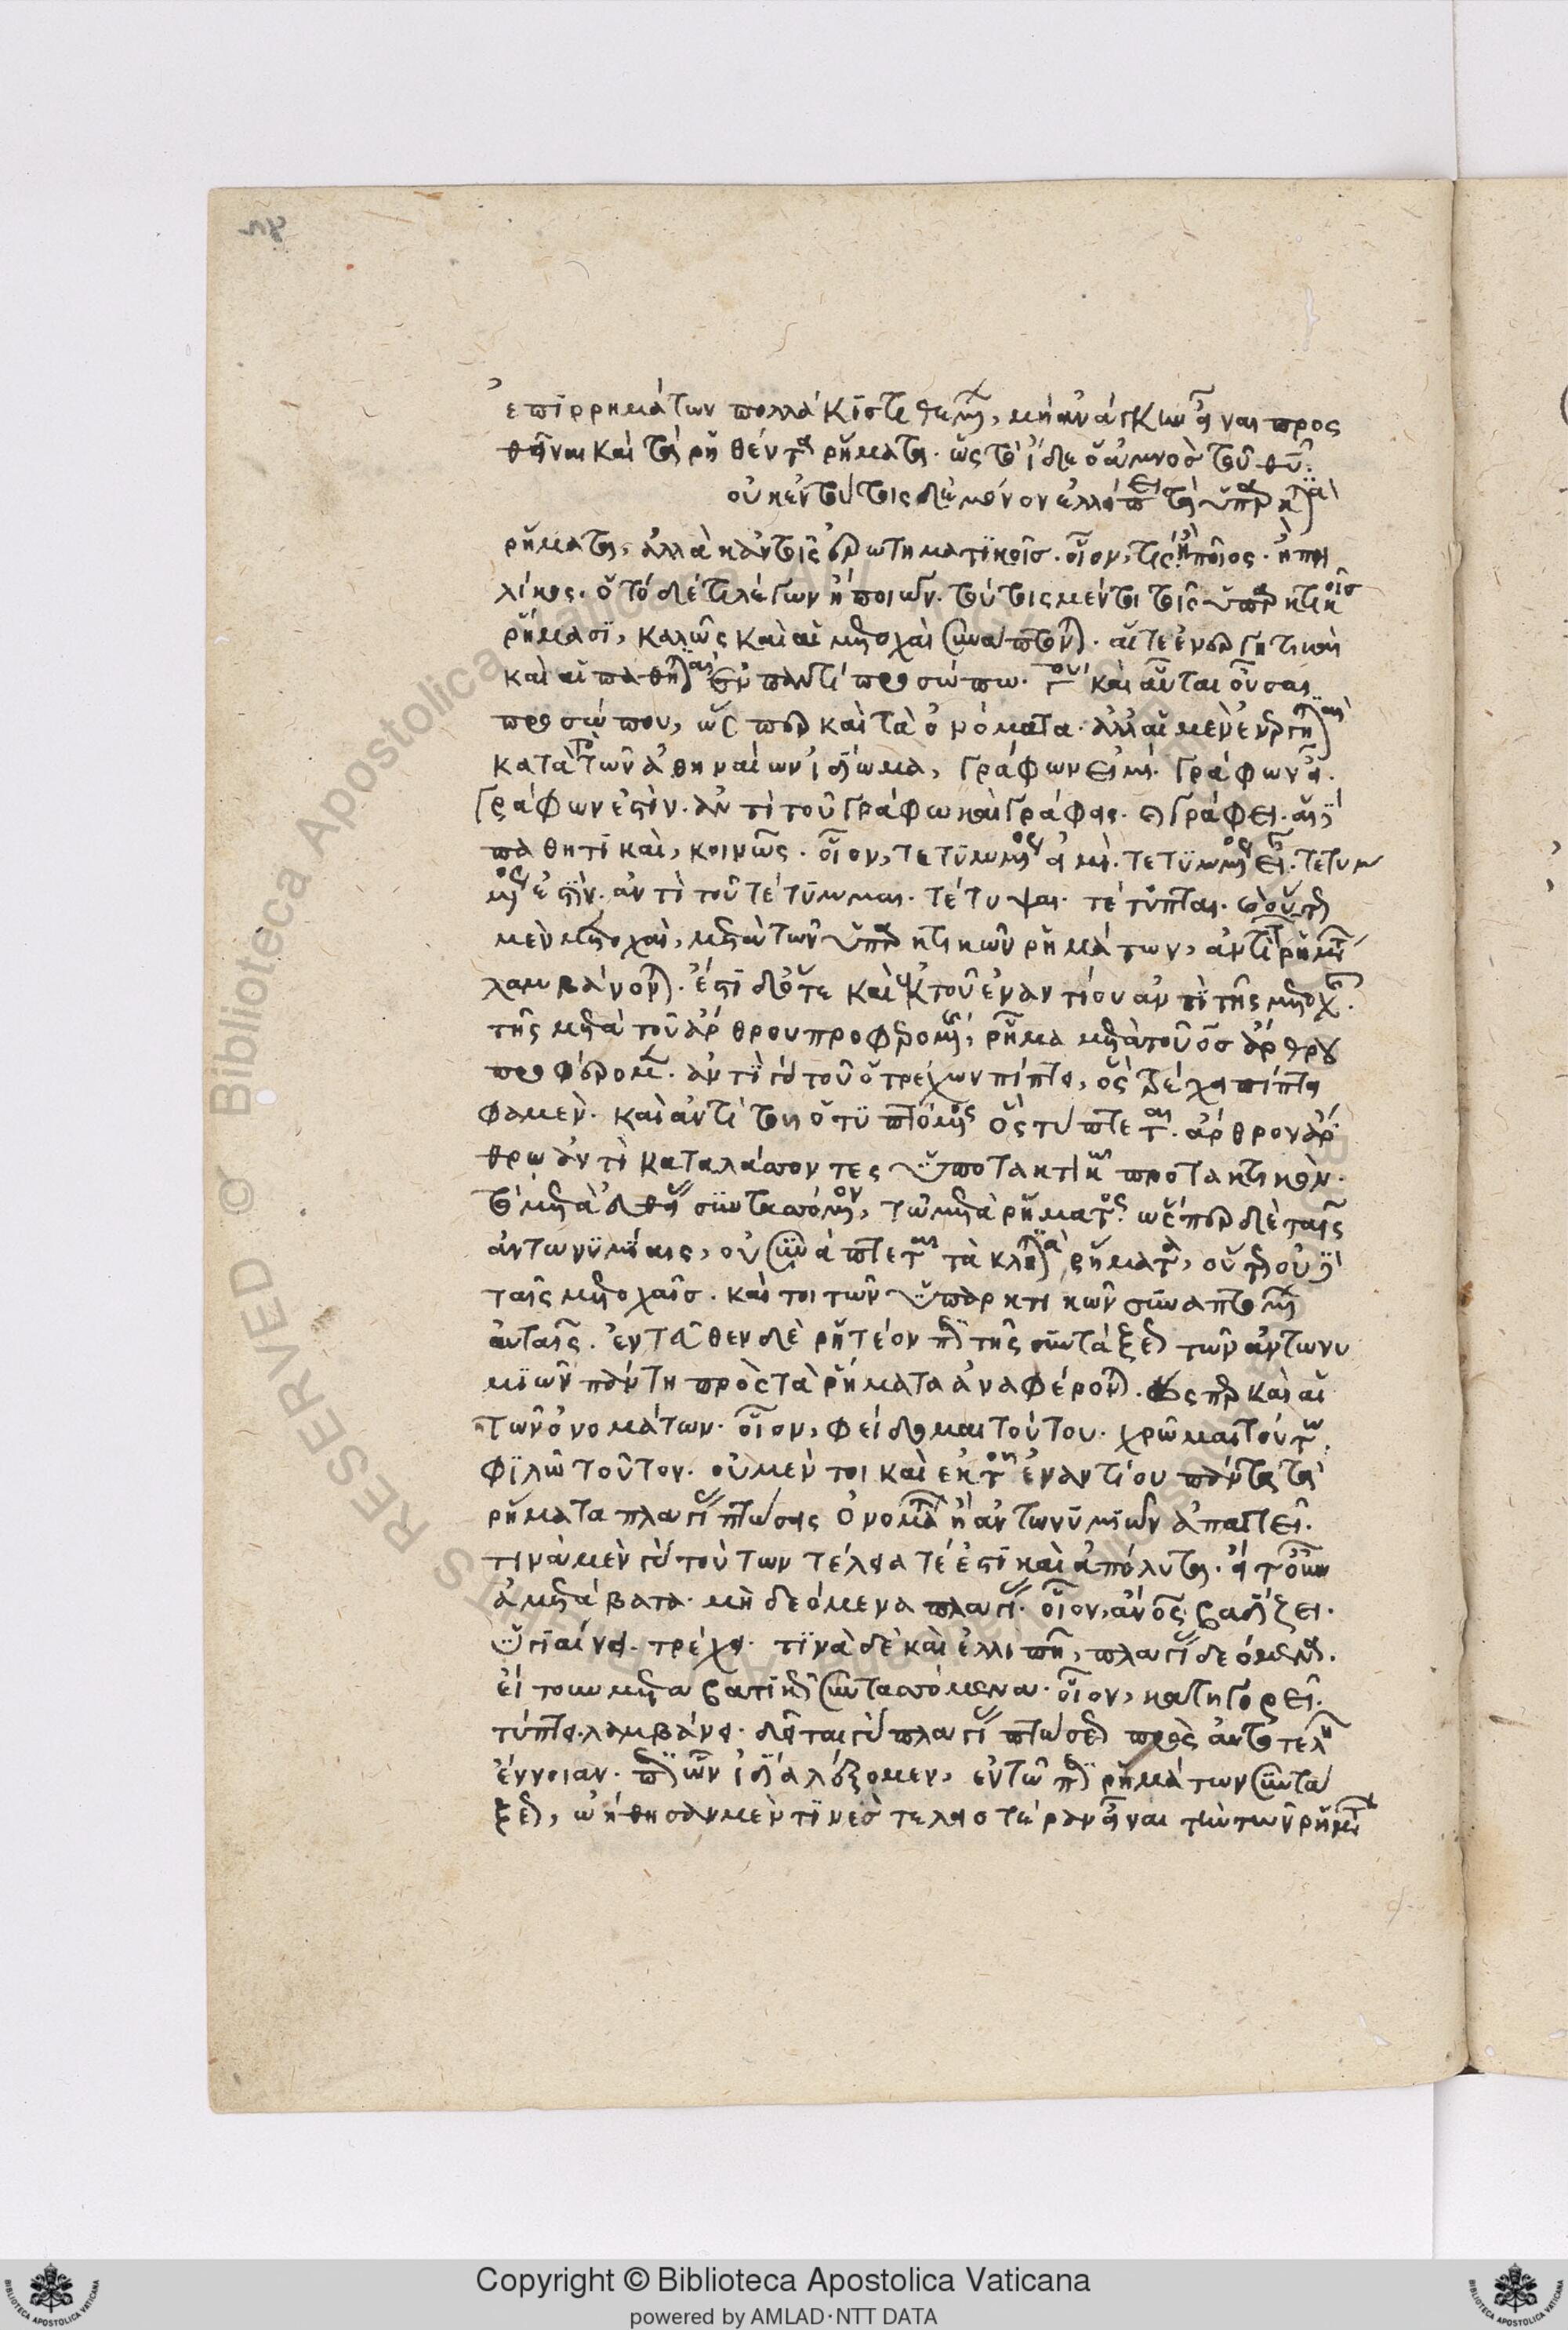 ἐπιρρημάτων πολλάκις τεθεῖσι, μὴ ἀνάγκην εἶναι προς
τεθῆναι καὶ τὰ ῥηθέντα ῥήματα. ὡς τὸ ἴδε ὁ ἀμνὸς τοῦ θυ.
οὐκ ἐν τούτοις δὲ μόνον ἐλλείπει τὰ ὑπαρκτικὰ
ῥήματα, ἀλλὰ κἀν τοῖς ἐρωτηματικοῖς. οἷον, τίς ἢ ποῖος. ἢ πη
λίκος. ὁ τόδέ τι λέγων ἢ ποιῶν. τούτοις μέντοι τοῖς ὑπαρκτικοῖς
ῥήμασι, καλῶς καὶ αἱ μετοχαὶ συνάπτονται. αἵ τε ἐνεργητικαὶ
καὶ αἱ παθητικαὶ ἐν παντὶ προσώπω. γ΄ου καὶ αὗται οὖσαι
προσώπου, ὥσπερ καὶ τὰ ὀνόματα. ἀλλ' αἱ μὲν ἐνεργητικαὶ
κατὰ τὸ τῶν ἀθηναίων ἰδίωμα, γράφων εἰμί. γράφων εἶ.
γράφων ἐστίν. ἀντὶ τοῦ γράφω καὶ γράφεις. καὶ γράφει. αἱ δὲ
παθητικαὶ, κοινῶς. οἷον, τετυμμένος εἰμί. τετυμμένος εἶ. τετυμ
μένος ἐστίν. ἀντὶ τοῦ τέτυμμαι. τέτυψαι. τέτυπται. καὶ οὕτω
μὲν μετοχαὶ, μετὰ τῶν ὑπαρκτικῶν ῥημάτων, ἀντὶ ῥημάτων
λαμβάνονται. ἔστι δ' ὅτε καὶ ἐκ τοῦ ἐναντίου ἀντὶ τῆς μετοχῆς
τῆς μετὰ τοῦ ἄρθρου προφερομένης, ῥῆμα μετὰ τοῦ ὃς ἄρθρου
προφέρομεν. ἀντὶ γὰρ τοῦ ὁ τρέχων πίπτει, ὃς τρέχει πίπτει
φαμέν. καὶ ἀντὶ τοῦ ὁ τυπτόμενος ὃς τύπτεται. ἄρθρον ἄρ
θρω ἀντικαταλάττοντες ὑποτακτικῶ προτακτικόν.
τὸ μετὰ εὐθείας συνταττόμενον, τῶ μετὰ ῥήματος. ὥσπερ δὲ ταῖς
ἀντωνυμίαις, οὐ συνάπτεται τὰ κλητικὰ ῥήματα, οὕτως οὐδὲ
ταῖς μετοχαῖς. καίτοι τῶν ὑπαρκτικῶν συναπτομένων
αὐταῖς. ἐντεῦθεν δὲ ῥητέον περὶ τῆς συντάξεως τῶν ἀντωνυ
μιῶν πάντη πρὸς τὰ ῥήματα ἀναφέρονται. ὥσπερ καὶ αἱ
τῶν ὀνομάτων. οἷον, φείδομαι τούτου. χρῶμαι τούτω.
φιλῶ τοῦτον. οὐ μέν τοι καὶ ἐκ τοῦ ἐναντίου πάντα τὰ
ῥήματα πλαγίας πτώσεις ὀνομάτων ἢ ἀντωνυμιῶν ἀπαιτεῖ.
τινὰ μὲν γὰρ τούτων τέλεια τέ ἐστι καὶ ἀπόλυτα. εἴτουν
ἀμετάβατα. μὴ δεόμενα πλαγίας. οἷον, ἄνος βαδίζει.
ὑγιαίνει. τρέχει. τινὰ δὲ καὶ ἐλλιπῆ, πλαγίας δεόμενα.
εἴτουν μεταβατικῶς συνταττόμενα. οἷον, κατηγορεῖ.
τύπτει. λαμβάνει. δεῖται γὰρ πλαγίας πτώσεως πρὸς αὐτοτελῆ
ἔννοιαν. περὶ ὧν ἰδία λέξομεν, ἐν τῶ περὶ ῥημάτων συντά
ξεως, ὠήθησαν μὲν τινὲς τελειοτέραν εἶναι τὴν τῶν ῥημάτων
Copyright © Biblioteca Apostolica Vaticana
powered by AMLAD·NTT DATA